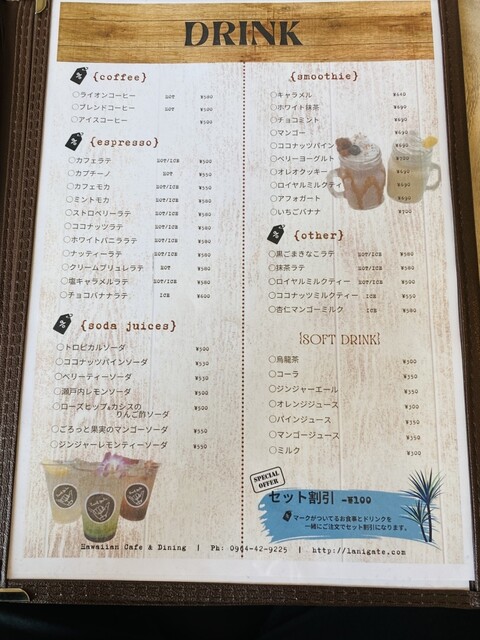 DRINK
{coffee}
○ライオンコーヒー HOT ¥580
○ブレンドコーヒー HOT ¥500
○アイスコーヒー ¥500
{espresso}
○カフェラテ HOT/ICE ¥500
○カプチーノ HOT ¥550
○カフェモカ HOT/ICE ¥550
○ミントモカ HOT/ICE ¥580
○ストロベリーラテ HOT/ICE ¥580
○ココナッツラテ HOT/ICE ¥580
○ホワイトバニララテ HOT/ICE ¥580
○ナッティーラテ HOT/ICE ¥580
○クリームブリュレラテ HOT ¥580
○塩キャラメルラテ HOT/ICE ¥580
○チョコバナナラテ ICE ¥600
{soda juices}
○トロピカルソーダ ¥500
○ココナッツパインソーダ ¥550
○ベリーティーソーダ ¥550
○瀬戸内レモンソーダ ¥500
○ローズヒップ&カシスの
りんご酢ソーダ ¥500
○ごろっと果実のマンゴーソーダ ¥550
○ジンジャーレモンティーソーダ ¥550
{smoothie}
○キャラメル ¥640
○ホワイト抹茶 ¥690
○チョコミント ¥690
○マンゴー ¥690
○ココナッツパイン ¥690
○ベリーヨーグルト ¥700
○オレオクッキー ¥690
○ロイヤルミルクティ ¥690
○アフォガート ¥690
○いちごバナナ ¥700
{other}
○黒ごまきなこラテ HOT/ICE ¥580
○抹茶ラテ HOT/ICE ¥580
○ロイヤルミルクティー HOT/ICE ¥500
○ココナッツミルクティー ICE ¥550
○杏仁マンゴーミルク ICE ¥580
{SOFT DRINK}
○烏龍茶 ¥300
○コーラ ¥350
○ジンジャーエール ¥350
○オレンジジュース ¥300
○パインジュース ¥350
○マンゴージュース ¥350
○ミルク ¥300
SPECIAL OFFER
セット割引 -¥100
マークがついてるお食事とドリンクを
一緒にご注文でセット割引になります。
Hawaiian Cafe & Dining | Ph: 0964-42-9225 | http://lanigate.com